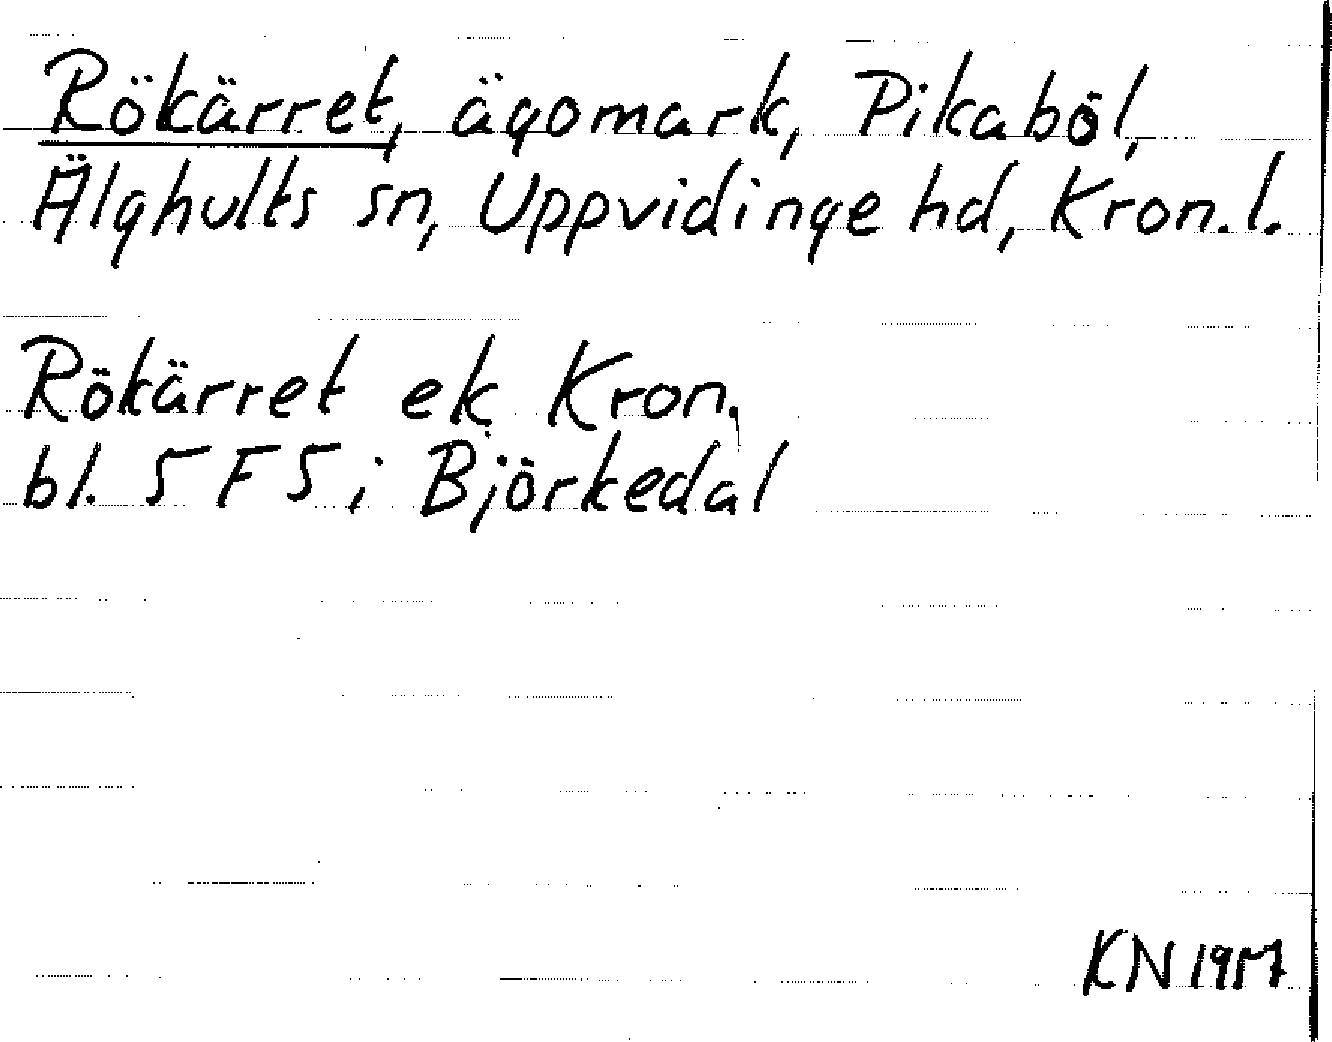 Rökärret, ägomark, Pikaböl,
Älghults sn, Uppvidinge hd, Kron. l.
Rökärret ek Kron.
bl. 5 F 5 i Björkedal
KN 1957